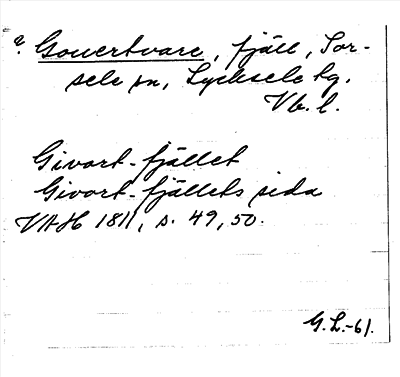 ? Gouertvare, fjäll, Sor-
sele sn, Lycksele tg.
Vb. l.
Givort-fjället
Givort-fjällets sida
VAH 1811, s. 49, 50.
G.L.-61.